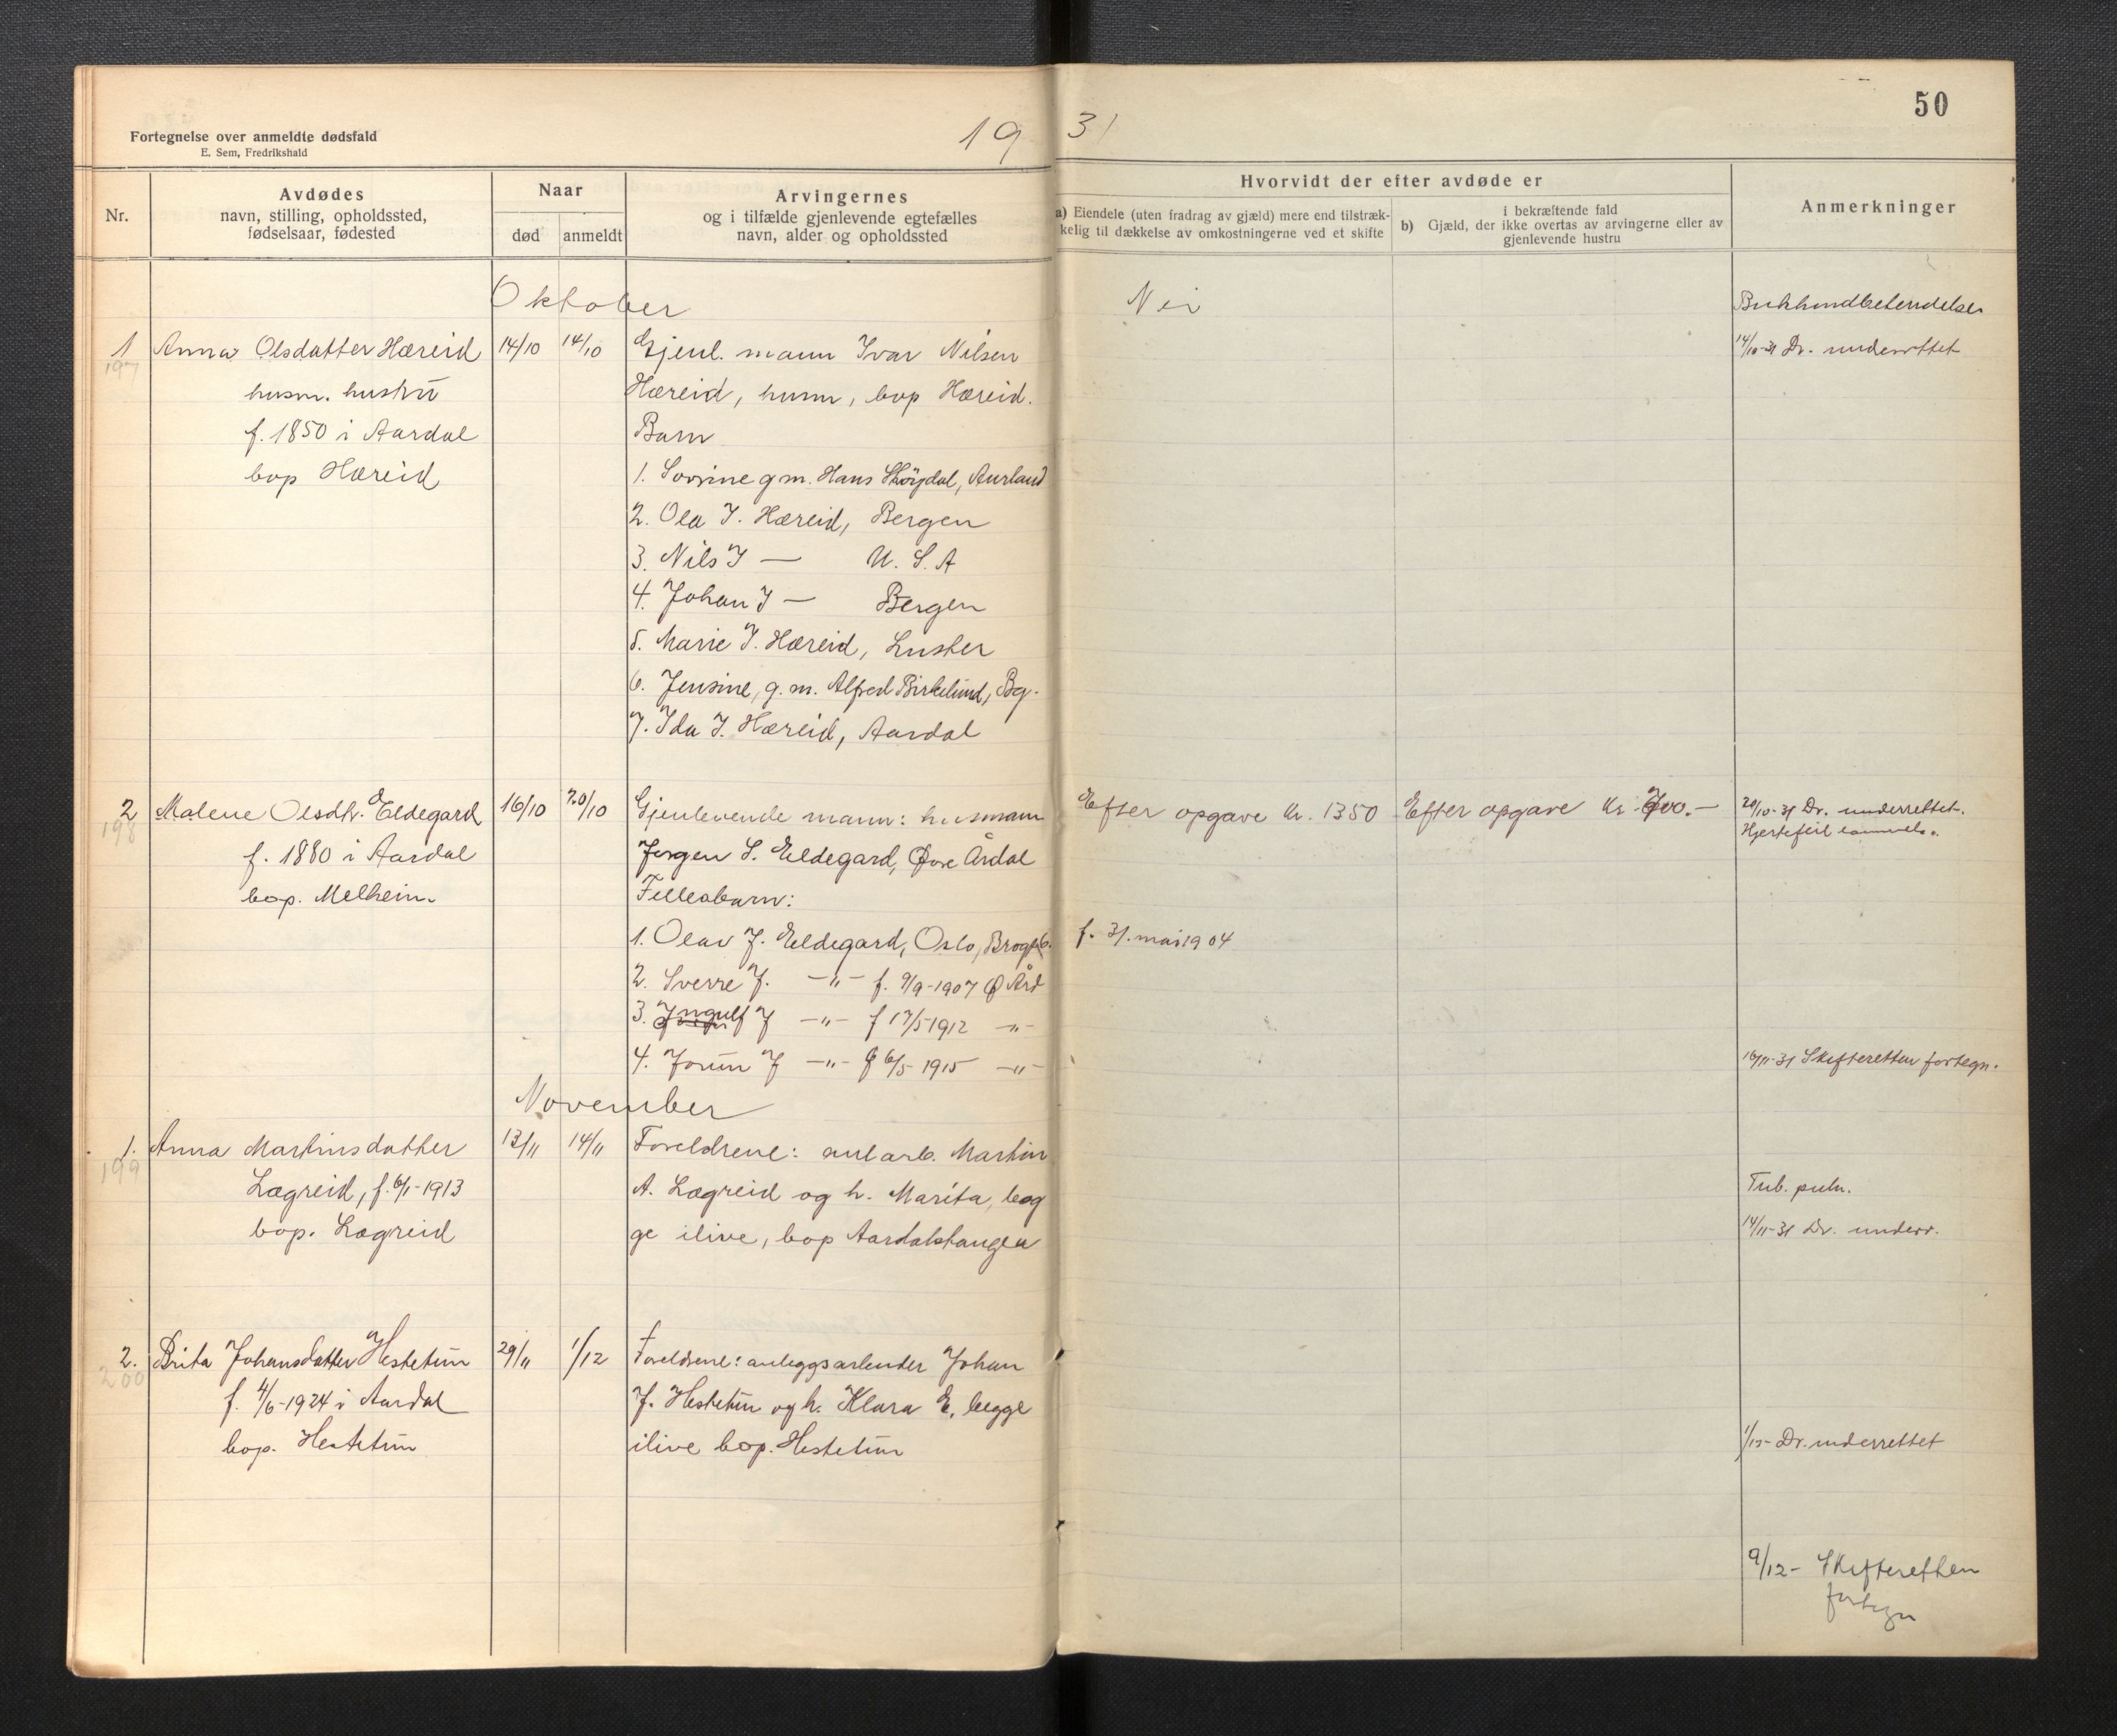 50
Fortegnelse over anmeldte dødsfald
E. Sem, Fredrikshald
19 31
Nr.
Avdødes
navn, stilling, opholdssted,
fødselsaar, fødested
Naar
død
anmeldt
Arvingernes
og i tilfælde gjenlevende egtefælles
navn, alder og opholdssted
Hvorvidt der efter avdøde er
a) Eiendele (uten fradrag av gjæld) mere end tilstræk-
kelig til dækkelse av omkostningerne ved et skifte
i bekræftende fald
b) Gjæld, der ikke overtas av arvingerne eller av
gjenlevende hustru
Anmerkninger
Oktober
1
197
Anna Olsdatter Hæreid
husm. hustru
f. 1850 i Aardal
bop Hæreid
14/10
14/10
Gjenl. mann Ivar Nilsen
Hæreid, husm, bop Hæreid.
Barn
1. Sovrine g m. Hans Sköjdal, Aurland
2. Ola I. Hæreid, Bergen
3. Nils I — U. S. A
4. Johan I — Bergen
5. Marie I. Hæreid, Luster
6. Jensine, g. m. Alfred Birkelund, Bg.
7. Ida I. Hæreid, Aardal
Nei
14/10-31 Dr. underrettet
2
198
Malene Olsdtr. Eldegard
f. 1880 i Aardal
bop. Melheim.
16/10
20/10
Gjenlevende mann: husmann
Jørgen S. Eldegard, Øvre Årdal
Fellesbarn:
1. Olav J. Eldegard, Oslo,
2. Sverre J. —"— f. 9/9-1907 Ø Ård
3. Ingulf J —"— f 17/5 1912 —"—
4. Jorun J —"— f 6/5 1915 —"—
Efter opgave kr. 1350
Efter opgave kr 700.—
f. 31. mai 1904
20/10-31 Dr. underrettet.
Hjertefeil
16/11-31 Skifteretten fortegn.
November
1.
199
Anna Martinsdatter
Lægreid, f. 6/1-1913
bop. Lægreid
13/11
14/11
Foreldrene: anl arb. Martin
A. Lægreid og h. Marita, beg
ge ilive, bop Aardalstangen
Tub. pulm.
14/11-31 Dr. underr.
2.
200
Brita Johansdatter Hestetun
f. 4/6-1924 i Aardal
bop. Hestetun
29/11
1/12
Foreldrene: anleggsarbeider Johan
J. Hestetun og h. Klara E, begge
ilive bop. Hestetun
1/12- Dr. underrettet
9/12- Skifteretten
fortegn